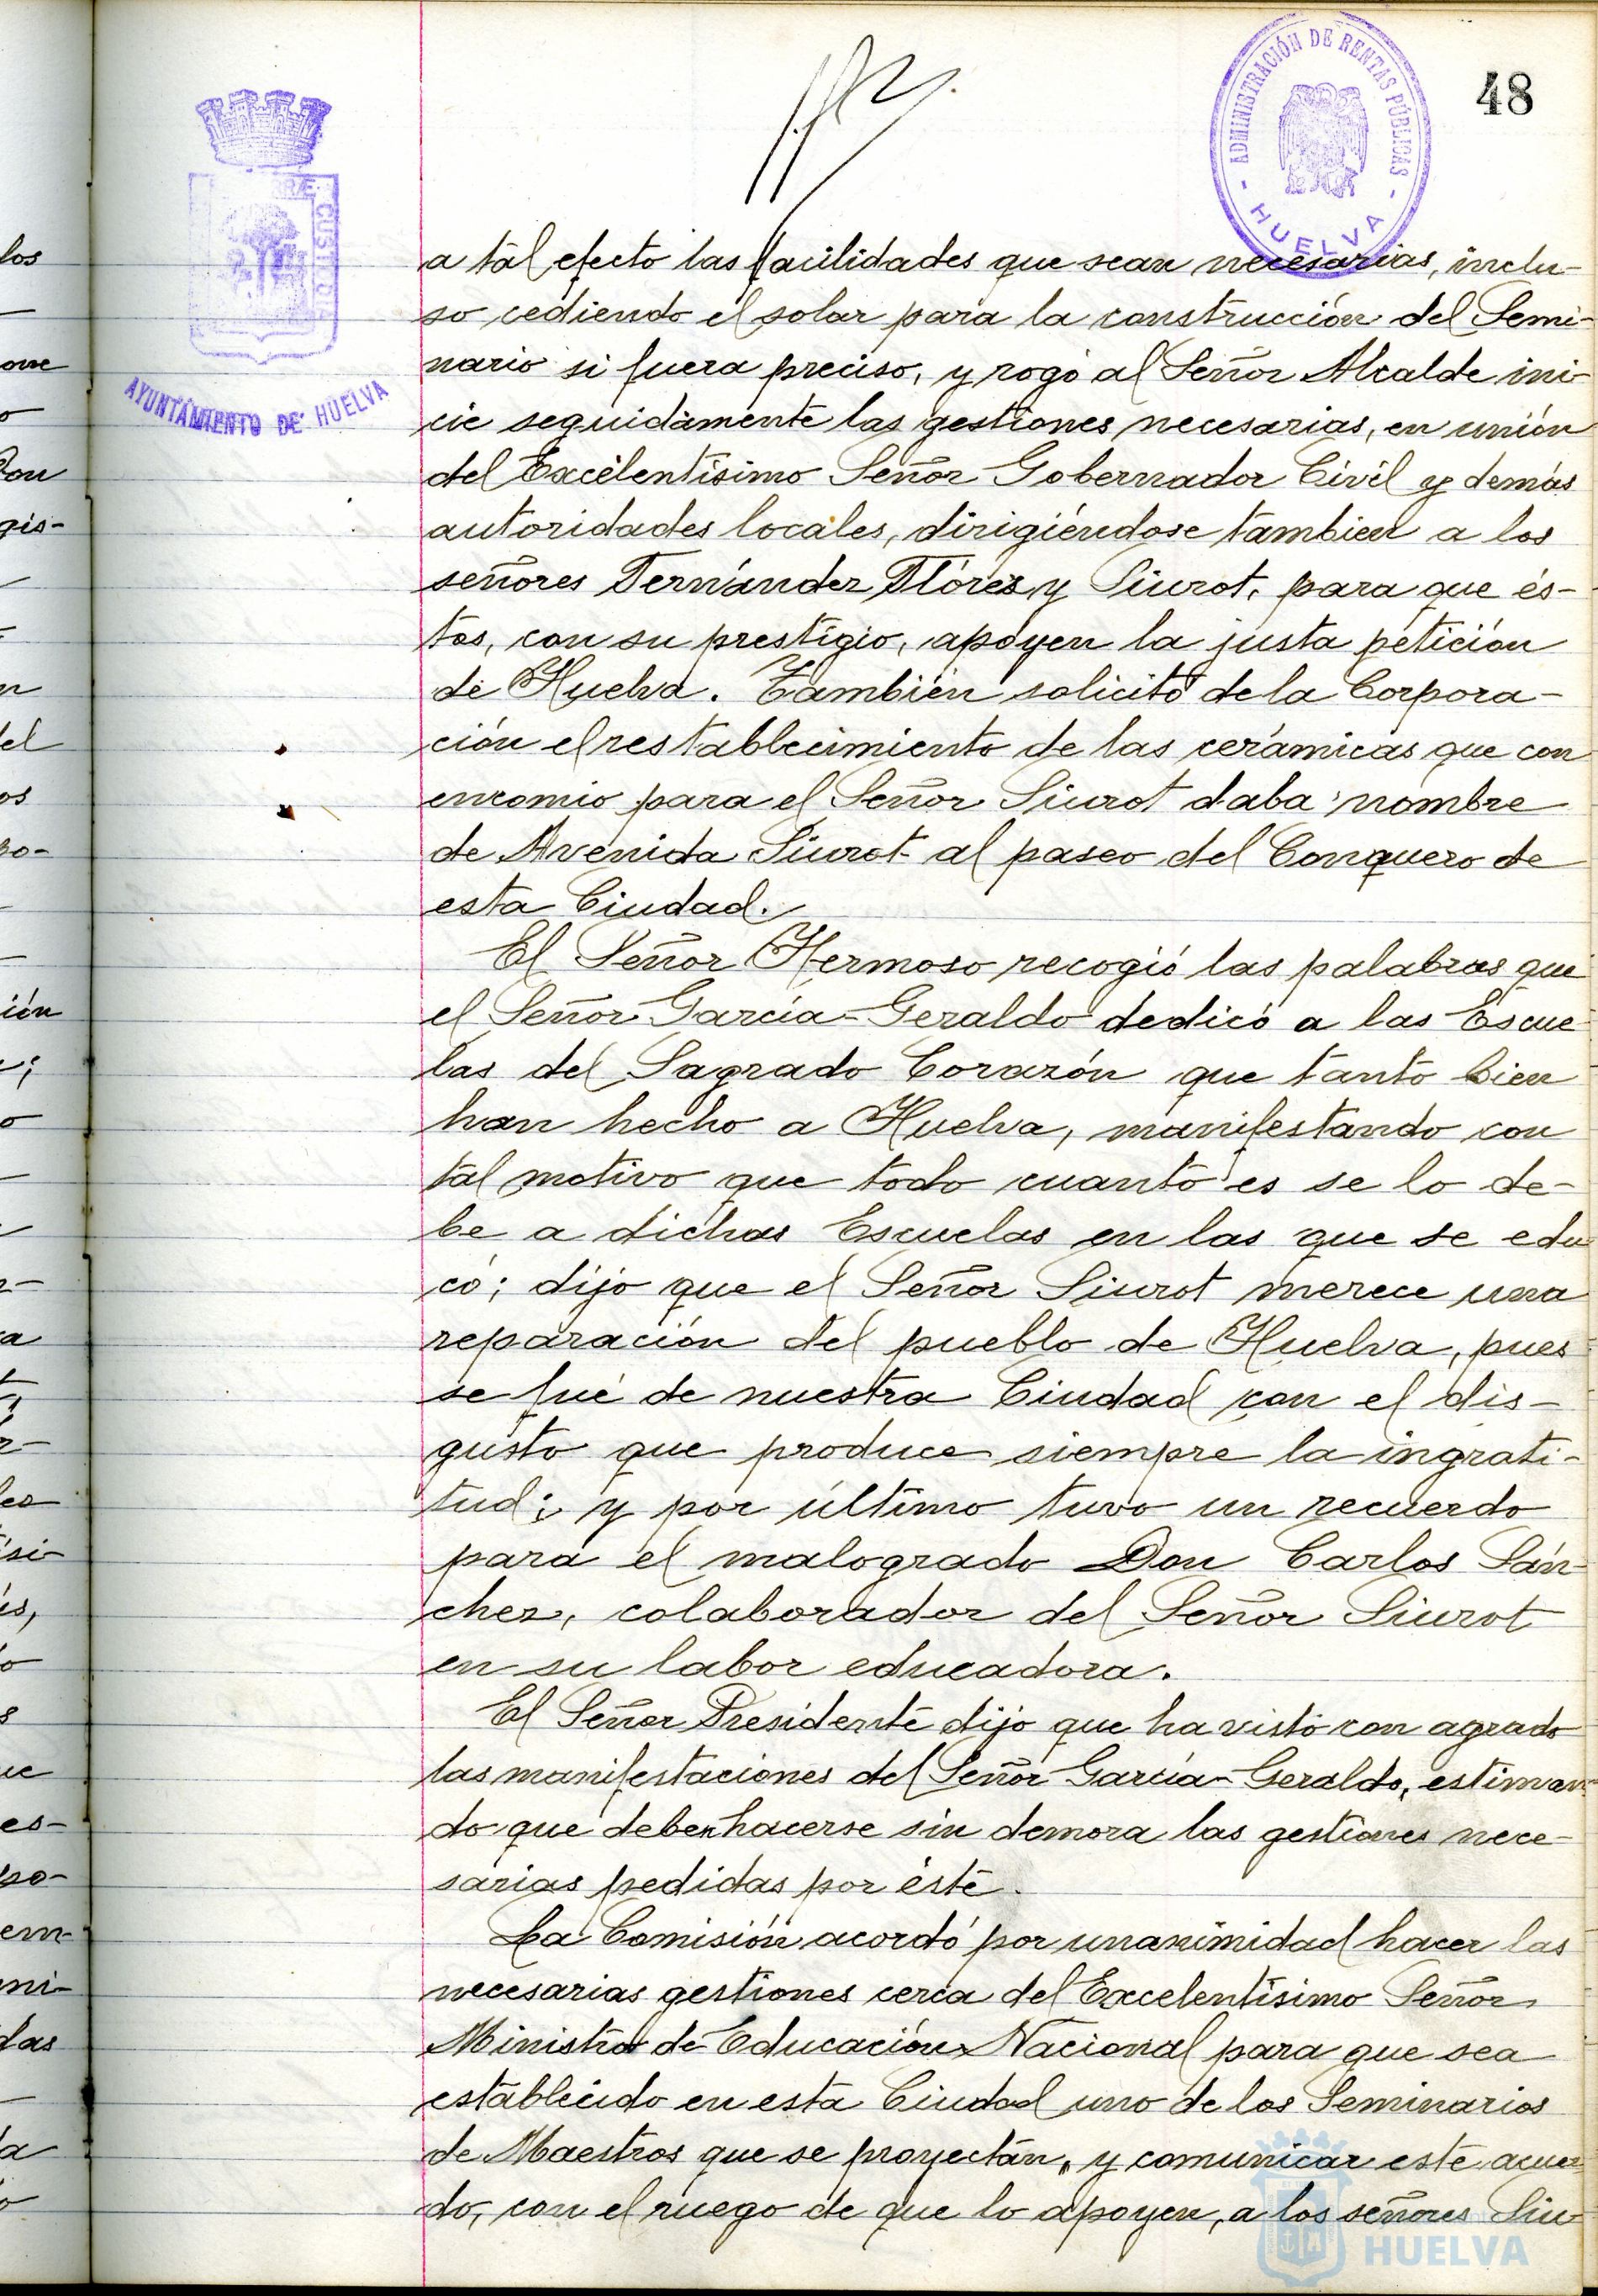 48
ADMINISTRACIÓN DE RENTAS PÚBLICAS
- HUELVA -
CUSTODIA
AYUNTAMIENTO DE HUELVA
a tal efecto las facilidades que sean necesarias, inclu-
so cediendo el solar para la construcción del Semi-
nario si fuera preciso, y rogó al Señor Alcalde ini-
cie seguidamente las gestiones necesarias, en unión
del Excelentísimo Señor Gobernador Civil y demás
autoridades locales, dirigiéndose tambien a los
señores Fernández Flórez y Siurot, para que és-
tos, con su prestigio, apoyen la justa petición
de Huelva. También solicitó de la Corpora-
ción el restablecimiento de las cerámicas que con
encomio para el Señor Siurot daba nombre
de Avenida Siurot al paseo del Conquero de
esta Ciudad.
El Señor Hermoso recogió las palabras que
el Señor García-Geraldo dedicó a las Escue-
las del Sagrado Corazón que tanto bien
han hecho a Huelva, manifestando con
tal motivo que todo cuanto es se lo de-
be a dichas Escuelas en las que se edu-
có; dijo que el Señor Siurot merece una
reparación del pueblo de Huelva, pues
se fué de nuestra Ciudad con el dis-
gusto que produce siempre la ingrati-
tud; y por último tuvo un recuerdo
para el malogrado Don Carlos Sán-
chez, colaborador del Señor Siurot
en su labor educadora.
El Señor Presidente dijo que ha visto con agrado
las manifestaciones del Señor García-Geraldo, estiman-
do que deben hacerse sin demora las gestiones nece-
sarias pedidas por éste.
La Comisión acordó por unanimidad hacer las
necesarias gestiones cerca del Excelentísimo Señor
Ministro de Educación Nacional para que sea
establecido en esta Ciudad uno de los Seminarios
de Maestros que se proyectan, y comunicar este acuer-
do, con el ruego de que lo apoyen, a los señores Siu-
HUELVA